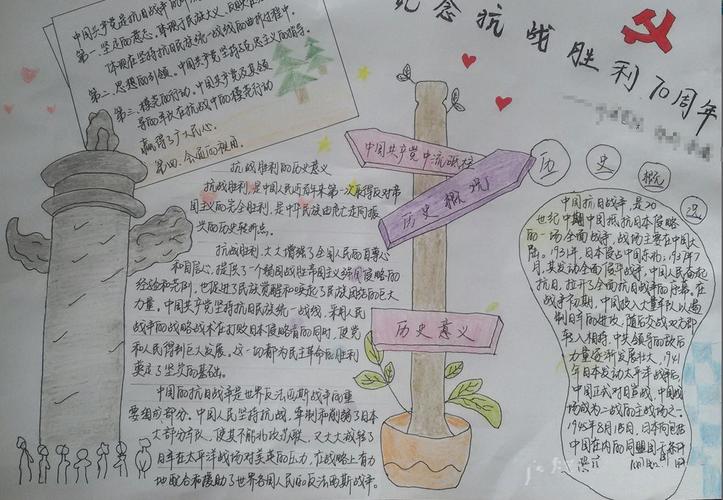 纪念抗战胜利70周年
中国共产党是抗日战争的
第一.坚定的意志.体现了民族大义
体现在坚持抗日民族统一战线的曲折过程中.
第二.思想的引领.中国共产党坚持马克思主义的指导.
第三.模范的行动.中国共产党及其领
导的军队在抗战中的模范行动
赢得了广大民心.
第四.全面的
中国共产党中流砥柱
历史概况
历史意义
历史概况
抗战胜利的历史意义
抗战胜利,是中国人民近百年来第一次取得反对帝
国主义的完全胜利,是中华民族由危亡走向振
兴的历史转折点。
抗战胜利,大大增强了全国人民的自尊心
和自信心,提供了一个弱国战胜帝国主义强国侵略的
经验和范例,也促进了民族觉醒和唤起了民族团结的巨大
力量。中国共产党坚持抗日民族统一战线,采用人民
战争的战略战术在打败日本侵略者的同时,使党
和人民得到巨大发展。这一切都为民主革命的胜利
奠定了坚实的基础。
中国的抗日战争是世界反法西斯战争的重
要组成部分。中国人民坚持抗战,牵制和削弱了日本
大部分军队,使其不能
日军在太平洋战场对美英的压力,在战略上有力
地配合和援助了世界各国人民的反法西斯战争。
中国抗日战争是20
世纪中期中国抵抗日本侵略
的一场全面战争,战场主要在中国大
陆。1931年,日本侵占中国东北;1937年7
月,其发动全面侵华战争,中国人民奋起
抗日,拉开了全面抗日战争的序幕。在
战争初期,中国投入大量军队以遏
制日军的进攻,随后交战双方即
转入相持,中共领导的敌后
力量逐渐发展壮大。1941
年日本发动太平洋战争后,
中国正式对日宣战,中国战
场成为二战的主战场之一.
1945年8月15日,日本向包括
中国在内的同盟国无条件